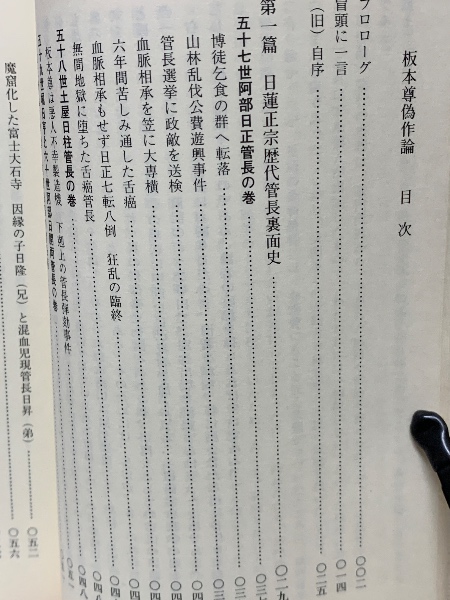 板本尊偽作論　目次
プロローグ……〇〇二
冒頭に一言……〇一四
（旧）自序……〇二五
第一篇　日蓮正宗歴代管長裏面史……〇二九
五十七世阿部日正管長の巻
博徒乞食の群へ転落
山林乱伐公費遊興事件
管長選挙に政敵を送検
血脈相承を笠に大専横
六年間苦しみ通した舌癌
血脈相承もせず日正七転八倒　狂乱の臨終
無間地獄に堕ちた舌癌管長……〇四八
五十八世土屋日柱管長の巻
板本尊は悪人不幸製造機　下剋上の管長弾劾事件
魔窟化した富士大石寺　因縁の子日隆（兄）と混血児現管長日昇（弟）
〇五二
〇五六